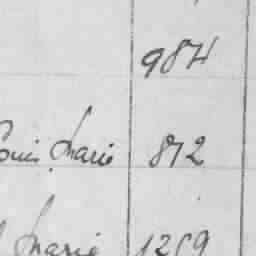 984
Louis Marie 872
Marie 1269